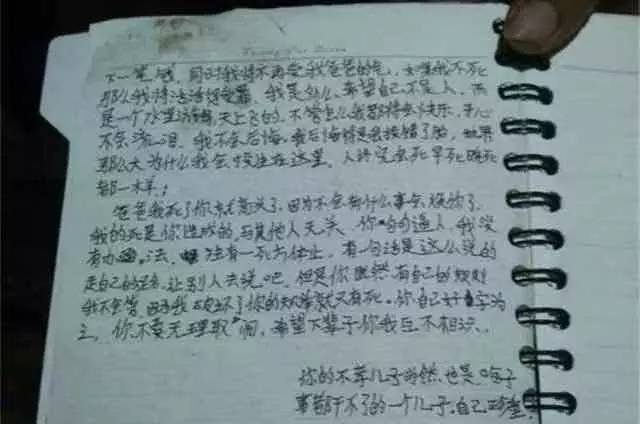 下一笔钱,同时我将不再受我爸爸的气,如果我不死
那么我将活活得受罪,我是多么希望自己不是人,而
是一个水里游的,天上飞的,不管怎么我都将会快乐,开心
不会流泪,我不会后悔,我后悔的是我投错了胎,世界
那么大为什么我会投生在这里,人终究会死早死晚死
都一样;
爸爸我死了你就高兴了,因为不会有什么事会烦你了,
我的死是你造成的,与其他人无关,你句句逼人,我没
有办法,唯独有一死为休止,有一句话是这么说的
走自己的路,让别人去说吧,但是你既然有自己的规则
我不会管,因为我破坏了你的规矩就只有死。你自己好自为
之,你不要无理取闹,希望下辈子你我互不相识。
你的不孝儿子
事都干不了的一个儿子。自己